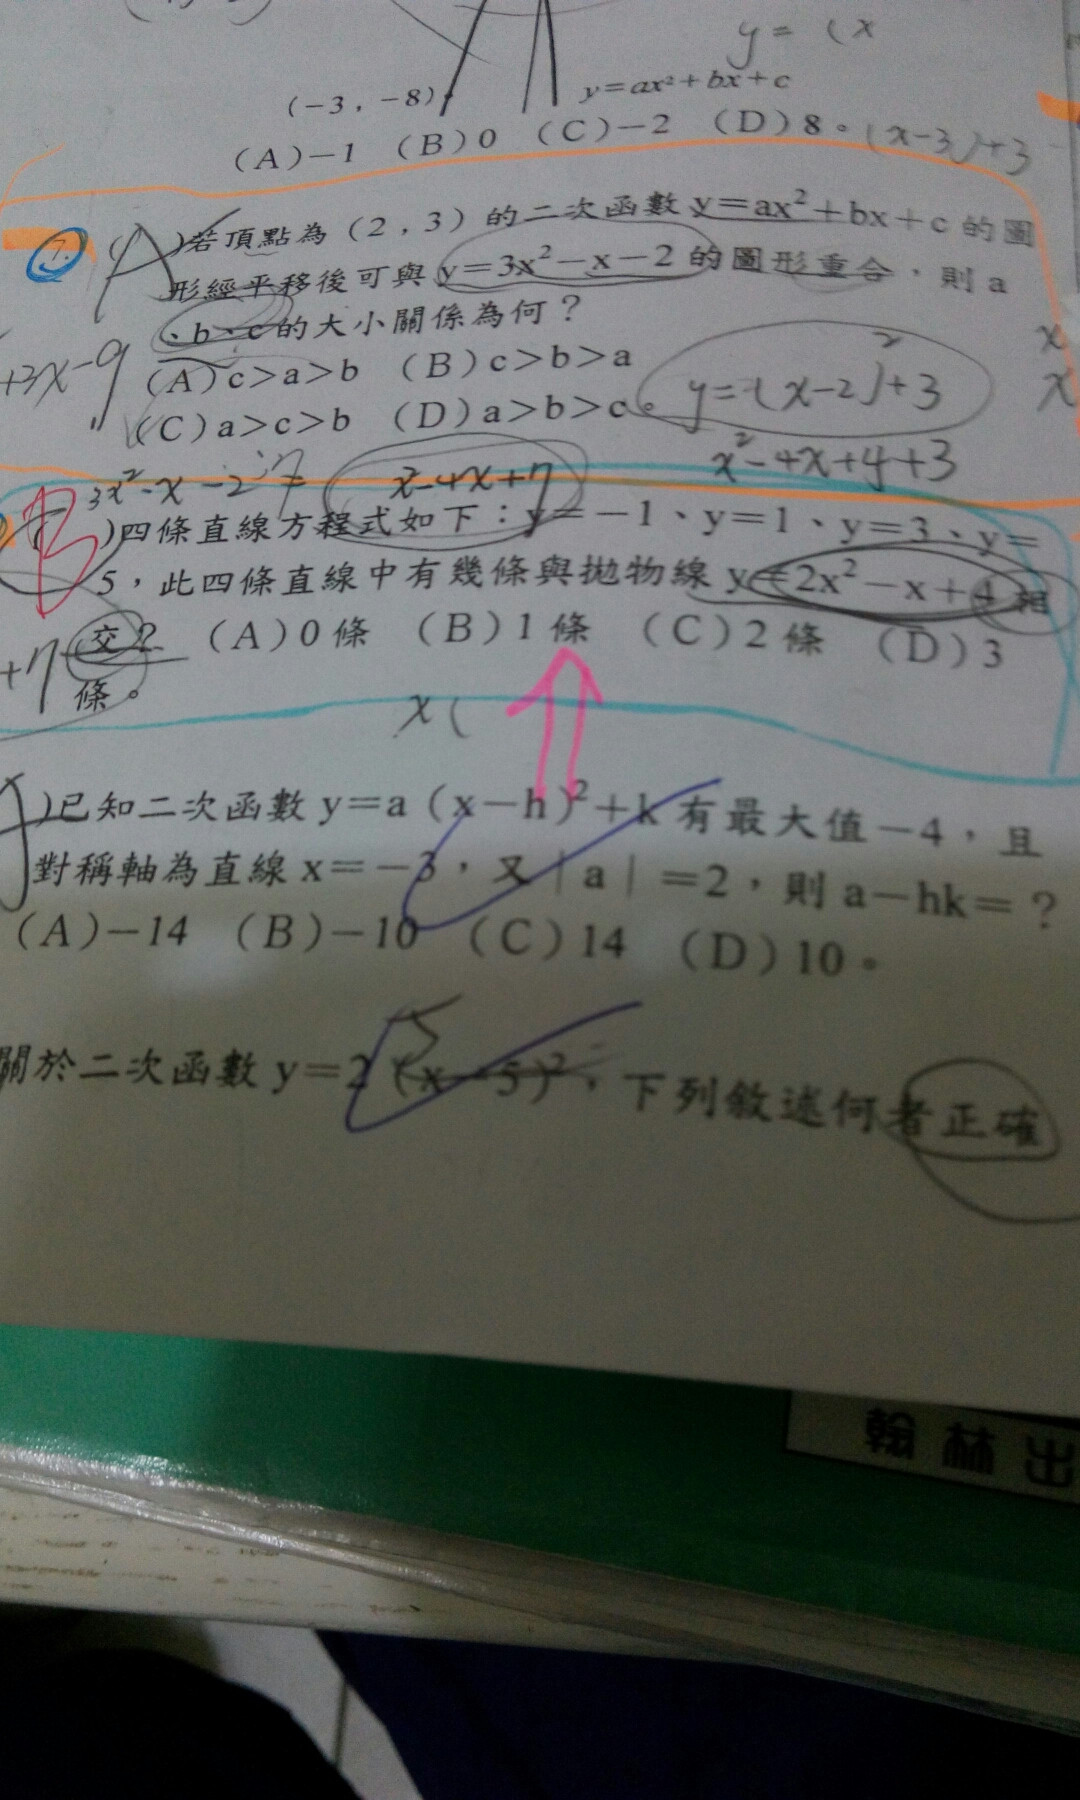 y = (x
(-3,-8)
y=ax²+bx+c
(A)-1 (B)0 (C)-2 (D)8。
(x-3)+3
7. (A)若頂點為(2,3)的二次函數y=ax²+bx+c的圖
形經平移後可與y=3x²-x-2的圖形重合,則a
、b、c的大小關係為何?
(A)c>a>b (B)c>b>a
+3x-9
y=(x-2)²+3
(C)a>c>b (D)a>b>c。
x²-4x+4+3
3x²-x-2
x²-4x+7
B )四條直線方程式如下:y=-1、y=1、y=3、y=
5,此四條直線中有幾條與拋物線y=2x²-x+4相
交? (A)0條 (B)1條 (C)2條 (D)3
+7
條。
x(
)已知二次函數y=a(x-h)²+k有最大值-4,且
對稱軸為直線x=-3,又|a|=2,則a-hk=?
(A)-14 (B)-10 (C)14 (D)10。
關於二次函數y=2(x-5)²,下列敘述何者正確
翰林出